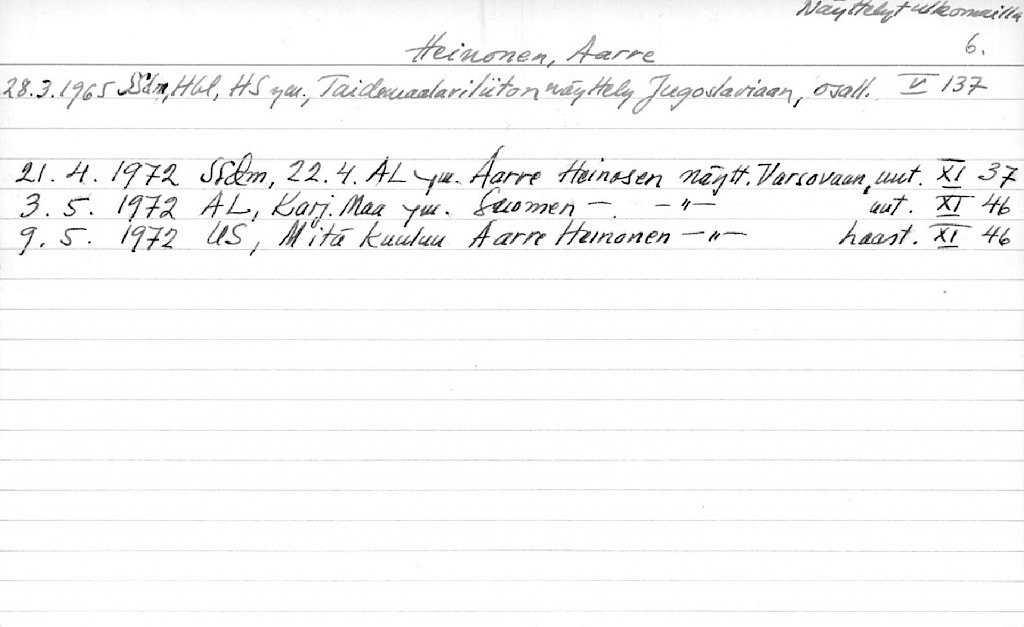 Näyttelyt ulkomailla
6.
Heinonen, Aarre
28.3.1965 SSdm, Hbl, HS ym., Taidemaalariliiton näyttely Jugoslaviaan, osall. V 137
21.4.1972 SSdm, 22.4. AL ym. Aarre Heinosen näytt. Varsovaan, uut. XI 37
3.5.1972 AL, Karj. Maa ym. Suomen — — " — uut. XI 46
9.5.1972 US, Mitä kuuluu Aarre Heinonen — " — haast. XI 46